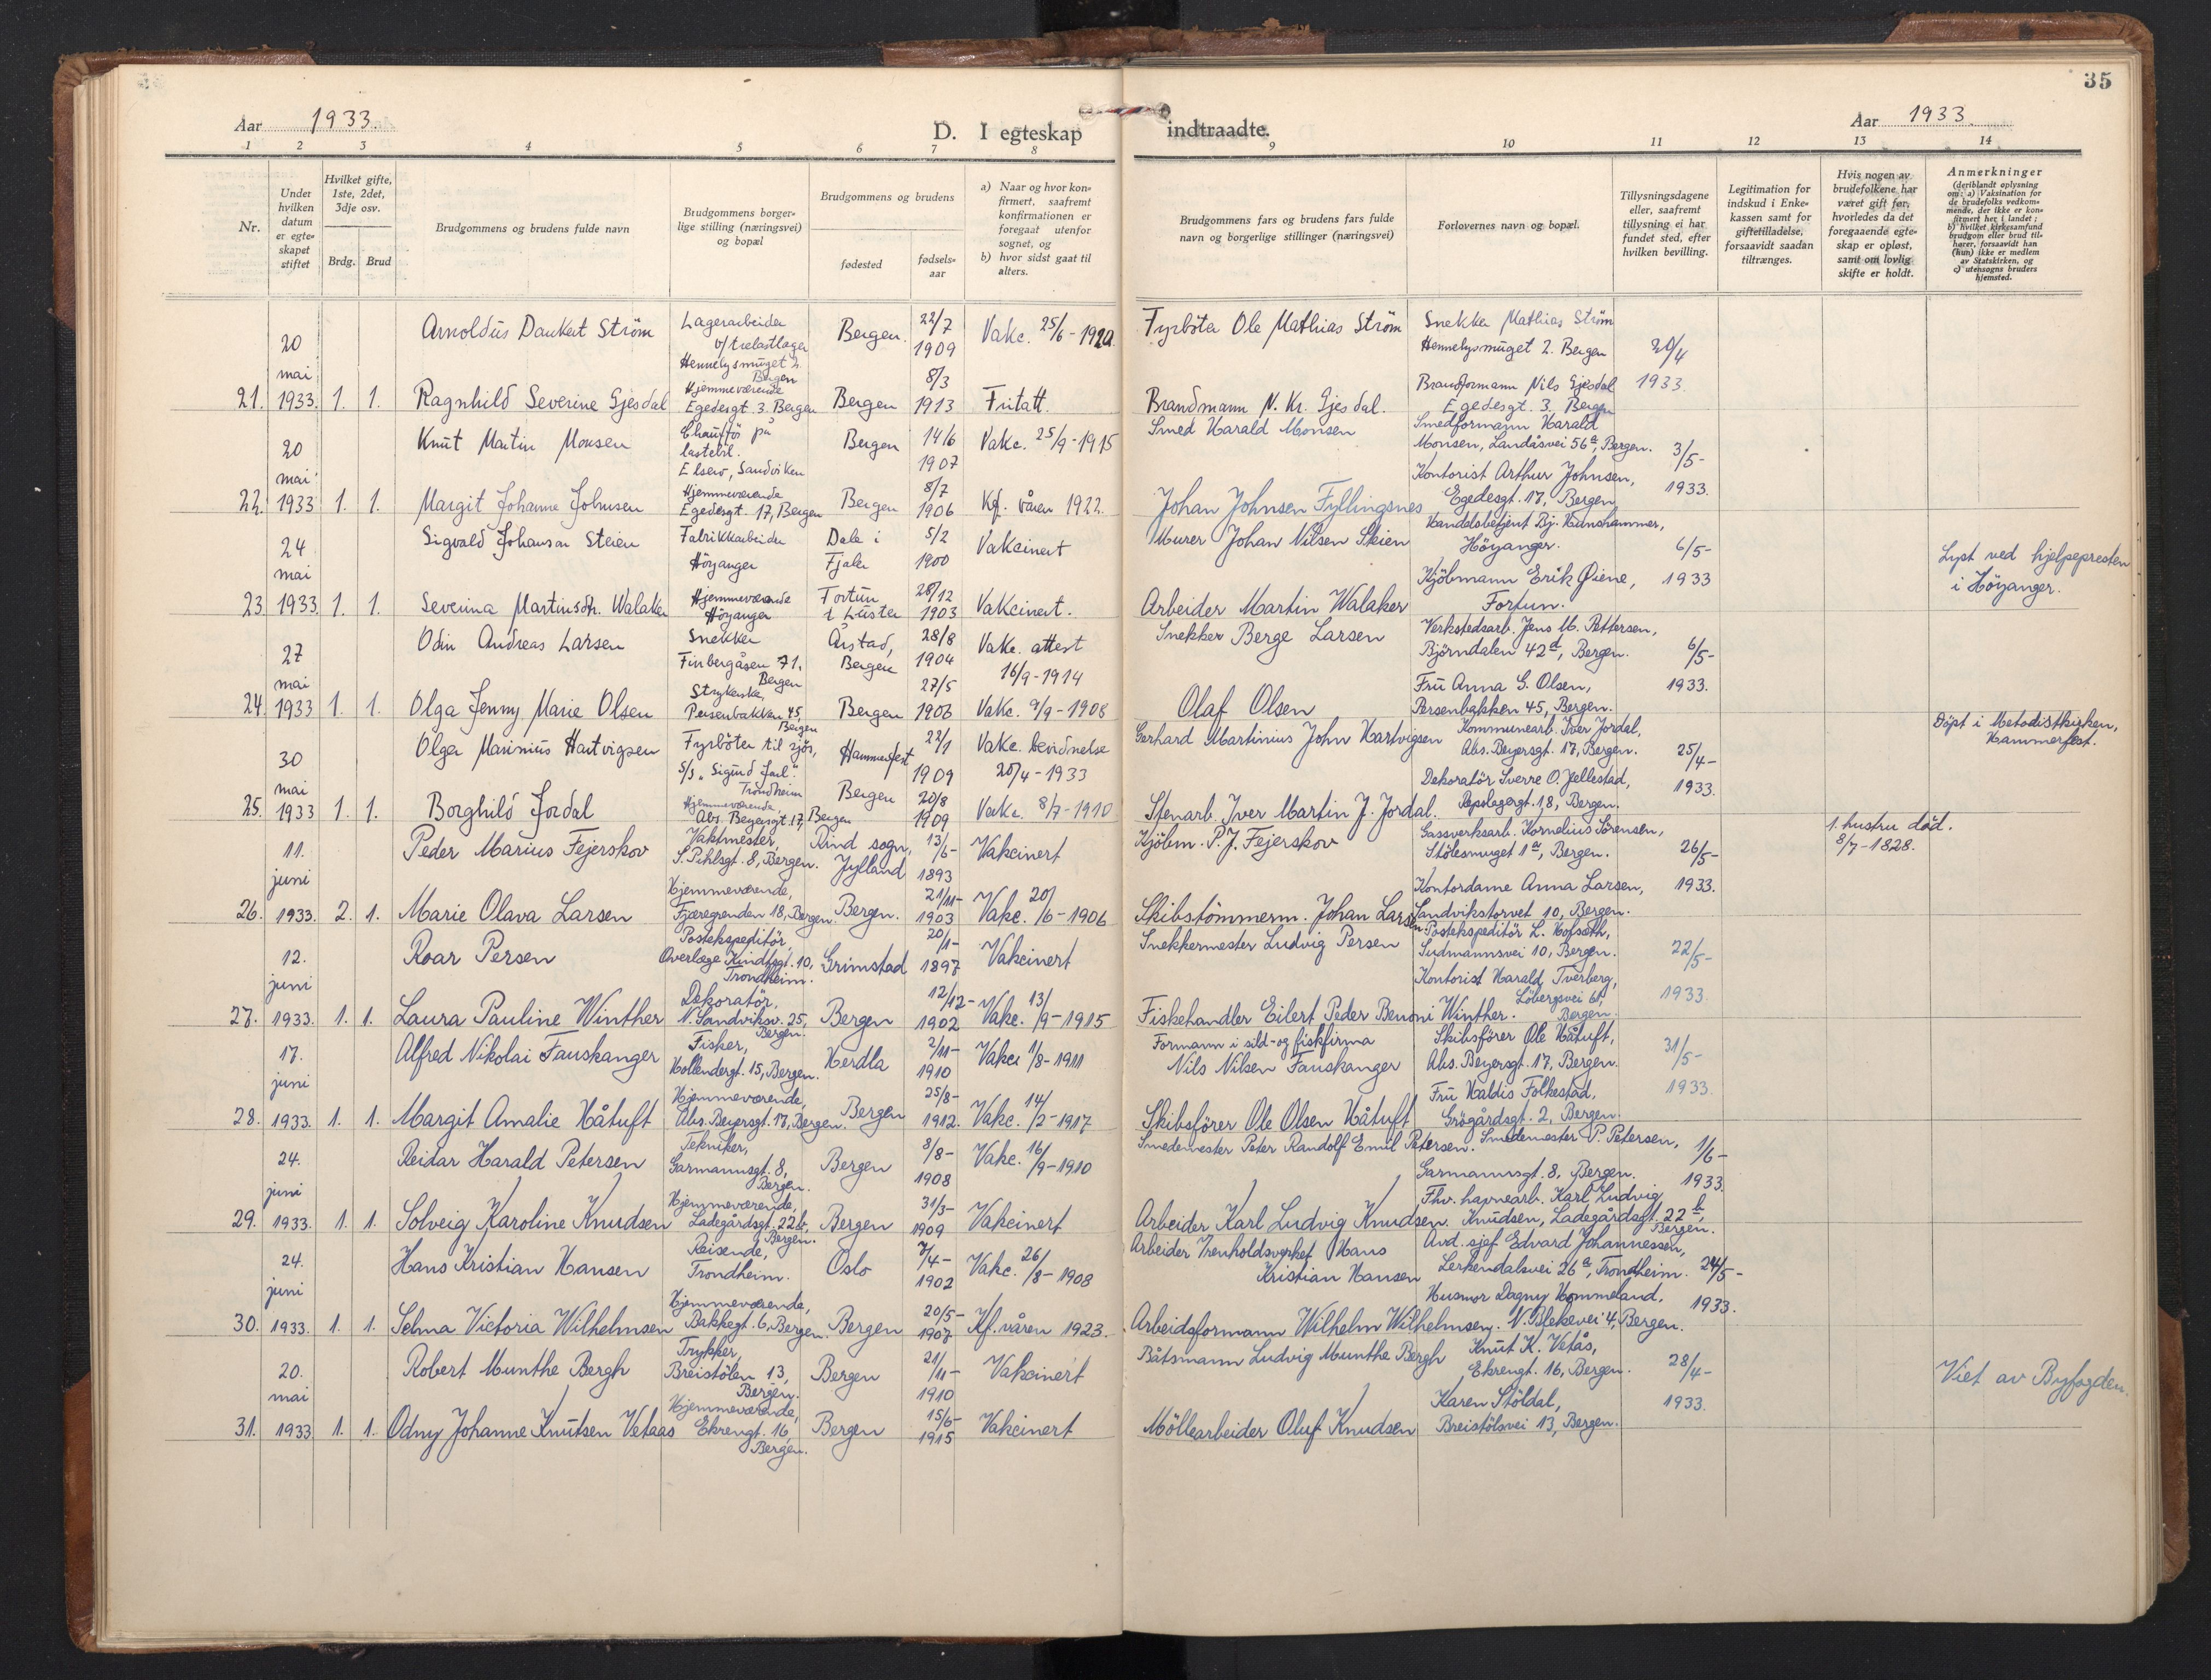 35
Aar 1933.
D. I egteskap indtraadte.
Aar 1933.
1 2 3 4 5 6 7 8 9 10 11 12 13 14
Nr.
Under hvilken datum er egteskapet stiftet
Hvilket gifte, 1ste, 2det, 3dje osv.
Brdg. Brud
Brudgommens og brudens fulde navn
Brudgommens borgerlige stilling (næringsvei) og bopæl
Brudgommens og brudens
fødested
fødselsaar
a) Naar og hvor konfirmert, saafremt konfirmationen er foregaat utenfor sognet, og
b) hvor sidst gaat til alters.
Brudgommens fars og brudens fars fulde navn og borgerlige stillinger (næringsvei)
Forlovernes navn og bopæl.
Tillysningsdagene eller, saafremt tillysning ei har fundet sted, efter hvilken bevilling.
Legitimation for indskud i Enkekassen samt for giftetilladelse, forsaavidt saadan tiltrænges.
Hvis nogen av brudefolkene har været gift før, hvorledes da det foregaaende egteskap er opløst, samt om lovlig skifte er holdt.
Anmerkninger
(deriblandt oplysning om: a) Vaksination for de brudefolks vedkommende, der ikke er konfirmert her i landet; b) hvilket kirkesamfund brudgom eller brud tilhører, forsaavidt han (hun) ikke er medlem av Statskirken, og c) utensogns bruders hjemsted.
21. 20 mai 1933. 1. 1.
Arnoldus Dankert Ström
Lagerarbeider v/trelastlager Hennelysmuget 2. Bergen
Bergen. 22/7 1909 Vakc. 25/6-1920.
Fyrböter Ole Mathias Ström
Snekker Mathias Ström Hennelysmuget 2. Bergen
20/4 1933.
Ragnhild Severine Gjesdal
Hjemmeværende Egedesgt. 3. Bergen
Bergen 8/3 1913 Fritatt.
Brandmann N. Kr. Gjesdal.
Brandformann Nils Gjesdal Egedesgt. 3. Bergen
22. 20 mai 1933 1. 1.
Knut Martin Monsen
Chaufför på lastebil. Elsero, Sandviken
Bergen 14/6 1907 Vakc. 25/9-1915
Smed Harald Monsen
Smedformann Harald Monsen, Landåsvei 56a, Bergen.
3/5- 1933.
Margit Johanne Johnsen
Hjemmeværende Egedesgt. 17, Bergen
Bergen 8/7 1906 Kf. våren 1922.
Johan Johnsen Fyllingsnes
Kontorist Arthur Johnsen, Egedesgt. 17, Bergen
23. 24 mai 1933. 1. 1.
Sigvald Johansen Steien
Fabrikkarbeider Höyanger
Dale i Fjaler 5/2 1900 Vakcinert
Murer Johan Nilsen Skien
Handelsbetjent Bj. Hunshammer, Höyanger.
6/5- 1933
Lyst ved hjelpepresten i Höyanger.
Severina Martinsdtr. Walaker
Hjemmeværende Höyanger
Fortun i Luster 28/12 1903 Vakcinert.
Arbeider Martin Walaker
Kjöbmann Erik Øiene, Fortun.
24. 27 mai 1933 1. 1.
Odin Andreas Larsen
Snekker Finbergåsen 71. Bergen
Årstad, Bergen 28/8 1904 Vakc. attest 16/9-1914
Snekker Berge Larsen
Verkstedsarb. Jens M. Pettersen, Björndalen 42a, Bergen.
6/5- 1933.
Olga Jenny Marie Olsen
Strykerske, Persenbakken 45, Bergen
Bergen 27/5 1906 Vakc. 9/9-1908
Olaf Olsen
Fru Anna G. Olsen, Persenbakken 45, Bergen.
25. 30 mai 1933 1. 1.
Olger Marinius Hartvigsen
Fyrböter til sjös, S/S "Sigurd Jarl". Trondheim
Hammerfest 22/1 1909 Vakc. bevidnelse 20/4-1933
Gerhard Martinius John Hartvigsen
Kommunearb. Iver Jordal, Abs. Beyersgt. 17, Bergen.
25/4- 1933.
Döpt i Metodistkirken, Hammerfest.
Borghild Jordal
Hjemmeværende, Abs. Beyersgt. 17, Bergen
Bergen 20/8 1909 Vakc. 8/7-1910
Stenarb. Iver Martin J. Jordal.
Dekoratör Sverre O. Jellestad, Repslagergt. 18, Bergen.
26. 11. juni 1933. 2. 1.
Peder Marius Fejerskov
Vaktmester, S. Pihlsgt. 8, Bergen.
Rind sogn, Jylland 13/6- 1893 Vakcinert
Kjöbm. P. J. Fejerskov
Gassverksarb. Kornelius Sörensen, Stölesmuget 1a, Bergen.
26/5- 1933.
1. hustru död. 8/7-1828.
Marie Olava Larsen
Hjemmeværende, Fjæregrenden 18, Bergen.
Bergen. 21/11- 1903 Vakc. 20/6-1906
Skibstömmerm. Johan Larsen.
Kontordame Anna Larsen, Sandvikstorvet 10, Bergen.
27. 12. juni 1933. 1. 1.
Roar Persen
Postekspeditör, Overlege Kindtsgt. 10, Trondheim.
Grimstad 20/1- 1897 Vakcinert
Snekkermester Ludvig Persen
Postekspeditör L. Hofseth, Sudmannsvei 10, Bergen.
22/5- 1933.
Laura Pauline Winther
Dekoratör, N. Sandviksv. 25, Bergen.
Bergen 12/12- 1902 Vakc. 13/9-1915
Fiskehandler Eilert Peder Benoni Winther.
Kontorist Harald Tverberg, Löbergsvei 61, Bergen.
28. 17. juni 1933. 1. 1.
Alfred Nikolai Fauskanger
Fisker, Hollendergt. 15, Bergen.
Herdla 2/11- 1910 Vakci 1/8-1911
Formann i sild- og fiskfirma Nils Nilsen Fauskanger
Skibsförer Ole Håtuft, Abs. Beyersgt. 17, Bergen.
31/5- 1933.
Margit Amalie Håtuft
Hjemmeværende, Abs. Beyersgt. 17, Bergen.
Bergen 25/8- 1912. Vakc. 14/2-1917
Skibsförer Ole Olsen Håtuft
Fru Haldis Folkestad, Grögårdsgt. 2, Bergen.
29. 24. juni 1933. 1. 1.
Reidar Harald Petersen
Tekniker, Garmannsgt. 8, Bergen.
Bergen 8/8- 1908 Vakc. 16/9-1910
Smedemester Peter Randolf Emil Petersen.
Smedemester P. Petersen, Garmannsgt. 8, Bergen.
1/6- 1933.
Solveig Karoline Knudsen
Hjemmeværende, Ladegårdsgt. 22b, Bergen.
Bergen 31/3- 1909 Vakcinert
Arbeider Karl Ludvig Knudsen.
Fhv. havnearb. Karl Ludvig Knudsen, Ladegårdsgt. 22b, Bergen.
30. 24. juni 1933. 1. 1.
Hans Kristian Hansen
Reisende, Trondheim.
Oslo 7/4- 1902 Vakc. 26/8-1908
Arbeider Renholdsverket Hans Kristian Hansen
Avd. sjef Edvard Johannessen, Lerkendalsvei 26a, Trondheim.
24/5- 1933.
Selma Victoria Wilhelmsen
Hjemmeværende, Bakkegt. 6, Bergen.
Bergen 20/5- 1907 Kf. våren 1923.
Arbeidsformann Wilhelm Wilhelmsen.
Husmor Dagny Hommeland, N. Blekevei 4, Bergen.
31. 20. mai 1933 1. 1.
Robert Munthe Bergh
Trykker, Breistölen 13, Bergen.
Bergen 21/11- 1910 Vakcinert
Båtsmann Ludvig Munthe Bergh
Knut K. Vetås, Ekrengt. 16, Bergen.
28/4- 1933.
Viet av Byfogden.
Odny Johanne Knutsen Vetaas
Hjemmeværende, Ekrengt. 16, Bergen.
Bergen 15/6- 1915 Vakcinert
Möllearbeider Oluf Knudsen
Karen Stöldal, Breistölsvei 13, Bergen.